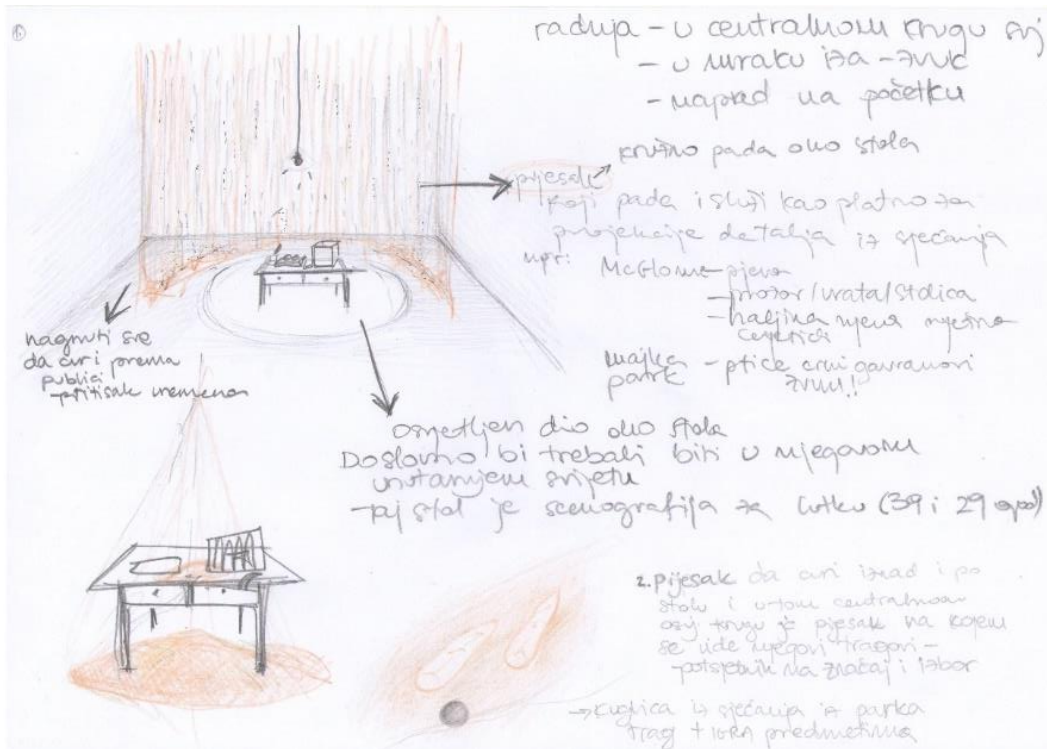 1.
radnja - u centralnom krugu svj
- u mraku iza - zvuk
- naprед na početku
kružno pada oko stola
pijesak
koji pada i služi kao platno za
projekcije detalja iz sjećanja
npr: McGlome - pjeva
- prozor/vrata/stolica
- haljina njena nježna
cvjetići
majka - ptice crni gavranovi
park zvuk!!
nagnuti sve
da curi prema
publici
- pritisak vremena
Osvjetljen dio oko stola
Doslovno bi trebali biti u njegovom
unutarnjem svijetu
- tj stol je scenografija za lutku (39 i 29 god)
2. pijesak da curi iznad i po
stolu i u tom centralnom
osvj krugu je pijesak na kojem
se vide njegovi tragovi -
potsjetnik na značaj i izbor
→ kuglica iz sjećanja iz parka
trag + IGRA predmetima